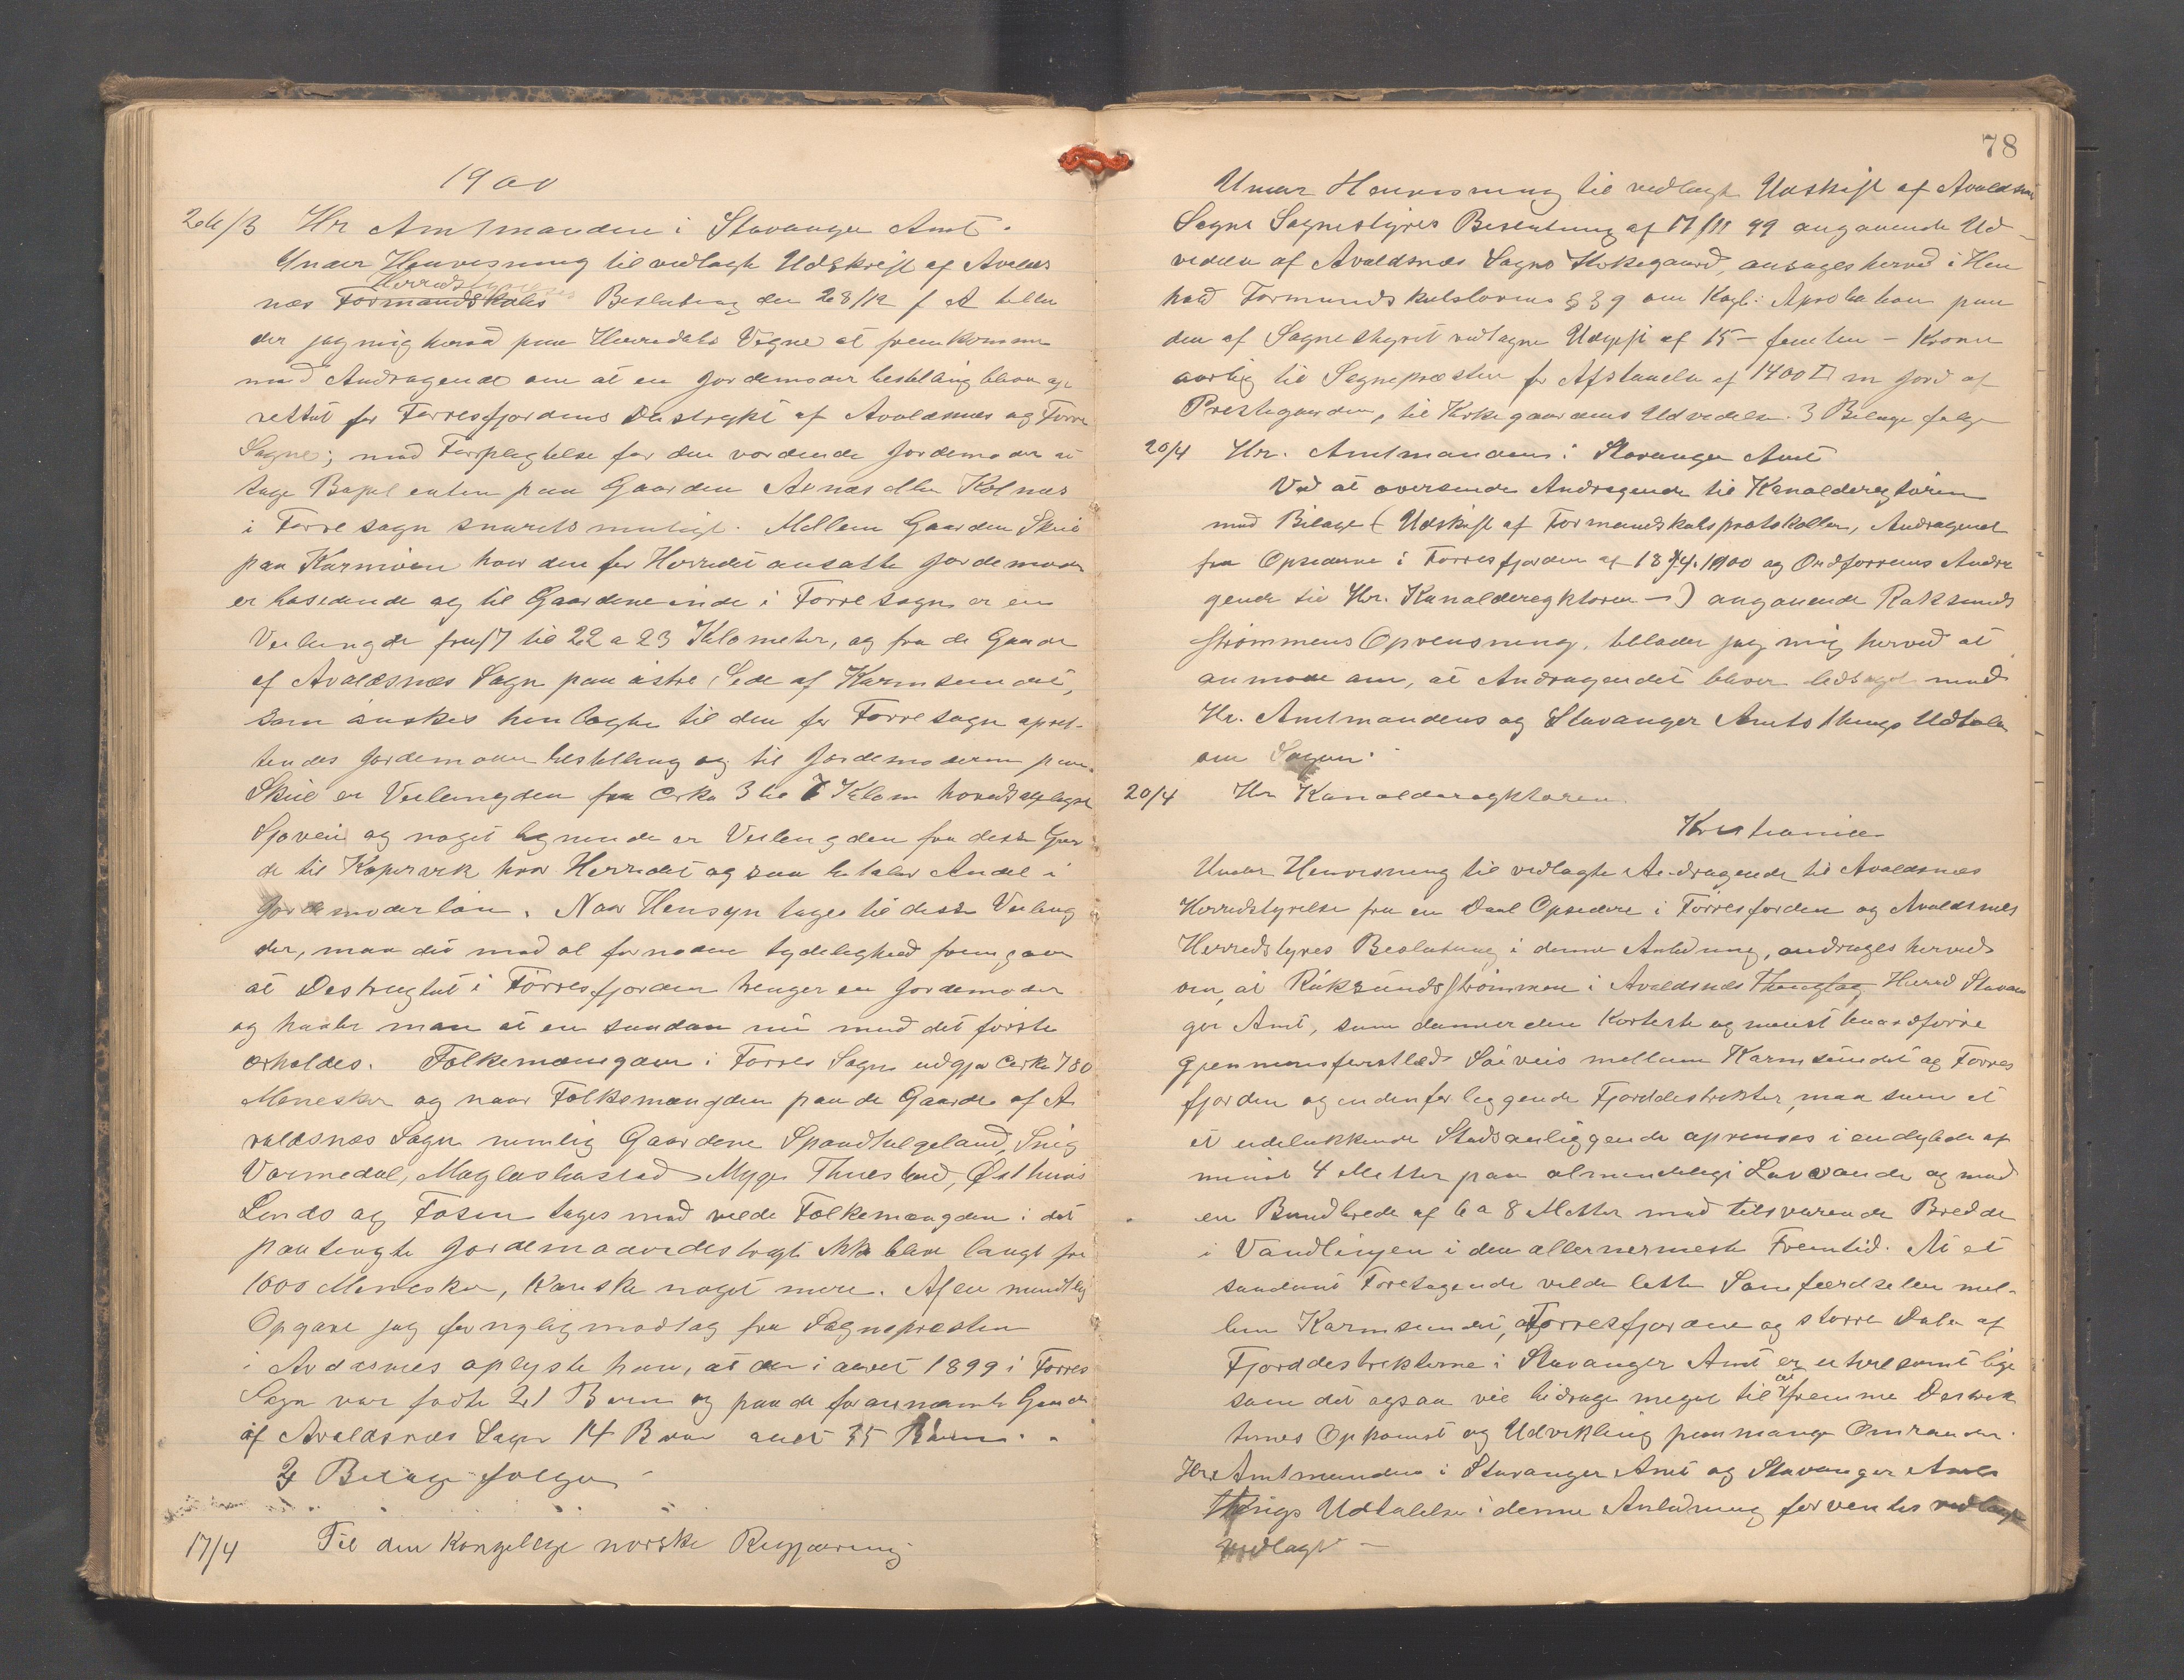 1900
24/3 Hr Amtmanden i Stavanger Amt.
Under Henvisning til vedlagte Udskrift af Avalds
Herredstyrelses
næs Formandskabs Beslutning den 28/12 f A tilla
der jeg mig herved paa Herredets Vegne at fremkomme
med Andragende om at en Jordemoder bestilling bliver op
rettet for Førresfjordens Destrykt af Avaldsnæs og Førre
Sagne; med Forpligtelse for den vordende Jordemoder at
tage Bopel enten paa Gaarden Avnæs eller Kolnæs
i Førre sogn snarets muligt. Mellem Gaarden Skeie
paa Karmøen hvor den for Herredet ansatte Jordemoder
er bosedende og til Gaardene inde i Førre sogn er en
Veilengde fra 17 til 22 a 23 Kilometer, og fra de Gaarde
af Avaldsnæs Sogn paa østre Side af Karmsundet,
som ønskes henlagte til den for Førre sogn opret-
tendes Jordemoder bestilling og til Jordemoderen paa
Skeie er Veilengden fra Cirka 3 til 7 Kilom hovedsageligst
Sjøveien og noget lignende er Veilengden fra disse Gaar
de til Kopervik hvor Herredet og saa betaler Andel i
Jordemoderløn. Naar Hensyn tages til disse Veileng
der, maa det med al fornøden tydelighed fremgaa
at Destrugtet i Førresfjorden trenger en Jordemoder
og haaber man at en saadan nu med det første
erholdes. Folkemængden i Førres Sogn udgjør Cirka 780
Menesker og naar Folkemængden paa de Gaarde af A
valdsnæs Sogn nemlig Gaardene Spandhelgeland, Snig
Vormedal, Moglashustad Myge Thuestad, Østhuus
Lindø og Fosen tages med vilde Folkemængden i det
paatengte Jordemoderdestrygt ikke blive langt fra
1000 Menesker, Kanske noget mere. Af en mundtlig
Opgave jeg forngligmodtog fra Sognepresten
i Avdasnes oplyste han, at der i aaret 1899 i Førres
Sogn var fødte 21 Børn og paa de forannævnte Gaarde
af Avaldsnæs Sogn 14 Børn altsaa 35 Børn.
2 Bilage følger
17/4 Til den Kongelige norske Regjæring
78
Under Henvisning til vedlagte Udskrift af Avaldsnæs
Sogne Sognestyres Beslutning af 17/11 99 angaaende Ud-
videlse af Avaldsnæs Sogns Kirkegaard, ansøges herved i Hen
hold Formandskabslovens § 39 om Kogl: Aprobation paa
den af Sognestyret vedtagne Udgift af 15 – femten – Kroner
aarlig til Sognepræsten for Afstaaelse af 1400 □ m Jord af
Prestegaarden, til Kirkegaardens Udvidelse. 3 Bilage følge
20/4 Hr. Amtmanden i Stavanger Amt
Ved at oversende Andragende til Kanaldiregtøren
med Bilage (Udskrift af Formandskabsprotokollen, Andragende
fra Opsidderne i Førresfjorden af 18/4 1900 og Ordførerens Andra
gende til Hr. Kanaldiregktøren –) angaaende Røksunds
strømmens Oprensning, tillader jeg mig herved at
anmode om, at Andragendet bliver ledsaget med
Hr. Amtmandens og Stavanger Amtsthings Udtale
om Sagen.
20/4 Hr Kanaldiregktøren
Kristiania
Under Henvisning til vedlagte Andragende til Avaldsnæs
Herredstyrelse fra en Deel Opsidere i Førresfjorden og Avaldsnes
Herredstyres Beslutning i denne Anledning, andrages herved
om at Røksundsstrømmen i Avaldsnæs Thinglag Herred Stavan
ger Amt, som danner den Korteste og meest
gjennemførstlæds Søiveis mellem Karmsundet og Førres
fjorden og indenfor liggende Fjorddestrikter, maa som et
et udelukkende Stadsanliggende oprenses i en dybde af
minst 4 Metter paa almindeligt Lavvande og med
en Bundbrede af 6 a 8 Metter med tilsvarende Bredde
i Vandlinjen i den allernermeste Fremtid. At et
saadant Foretagende vilde lette Samferdselen mel-
lem Karmsundet, og Førresfjordene og større Dele af
Fjorddestrikterne i Stavanger Amt er utvelsomt lige
som det ogsaa vil bidrage meget til at fremme Destrik
ternes Opkomst og Udvikling paa mange Omraader.
Hr Amtmanden i Stavanger Amt og Stavanger Amts
things Udtalelse i denne Anledning forventes vedlagt
vedlagt –